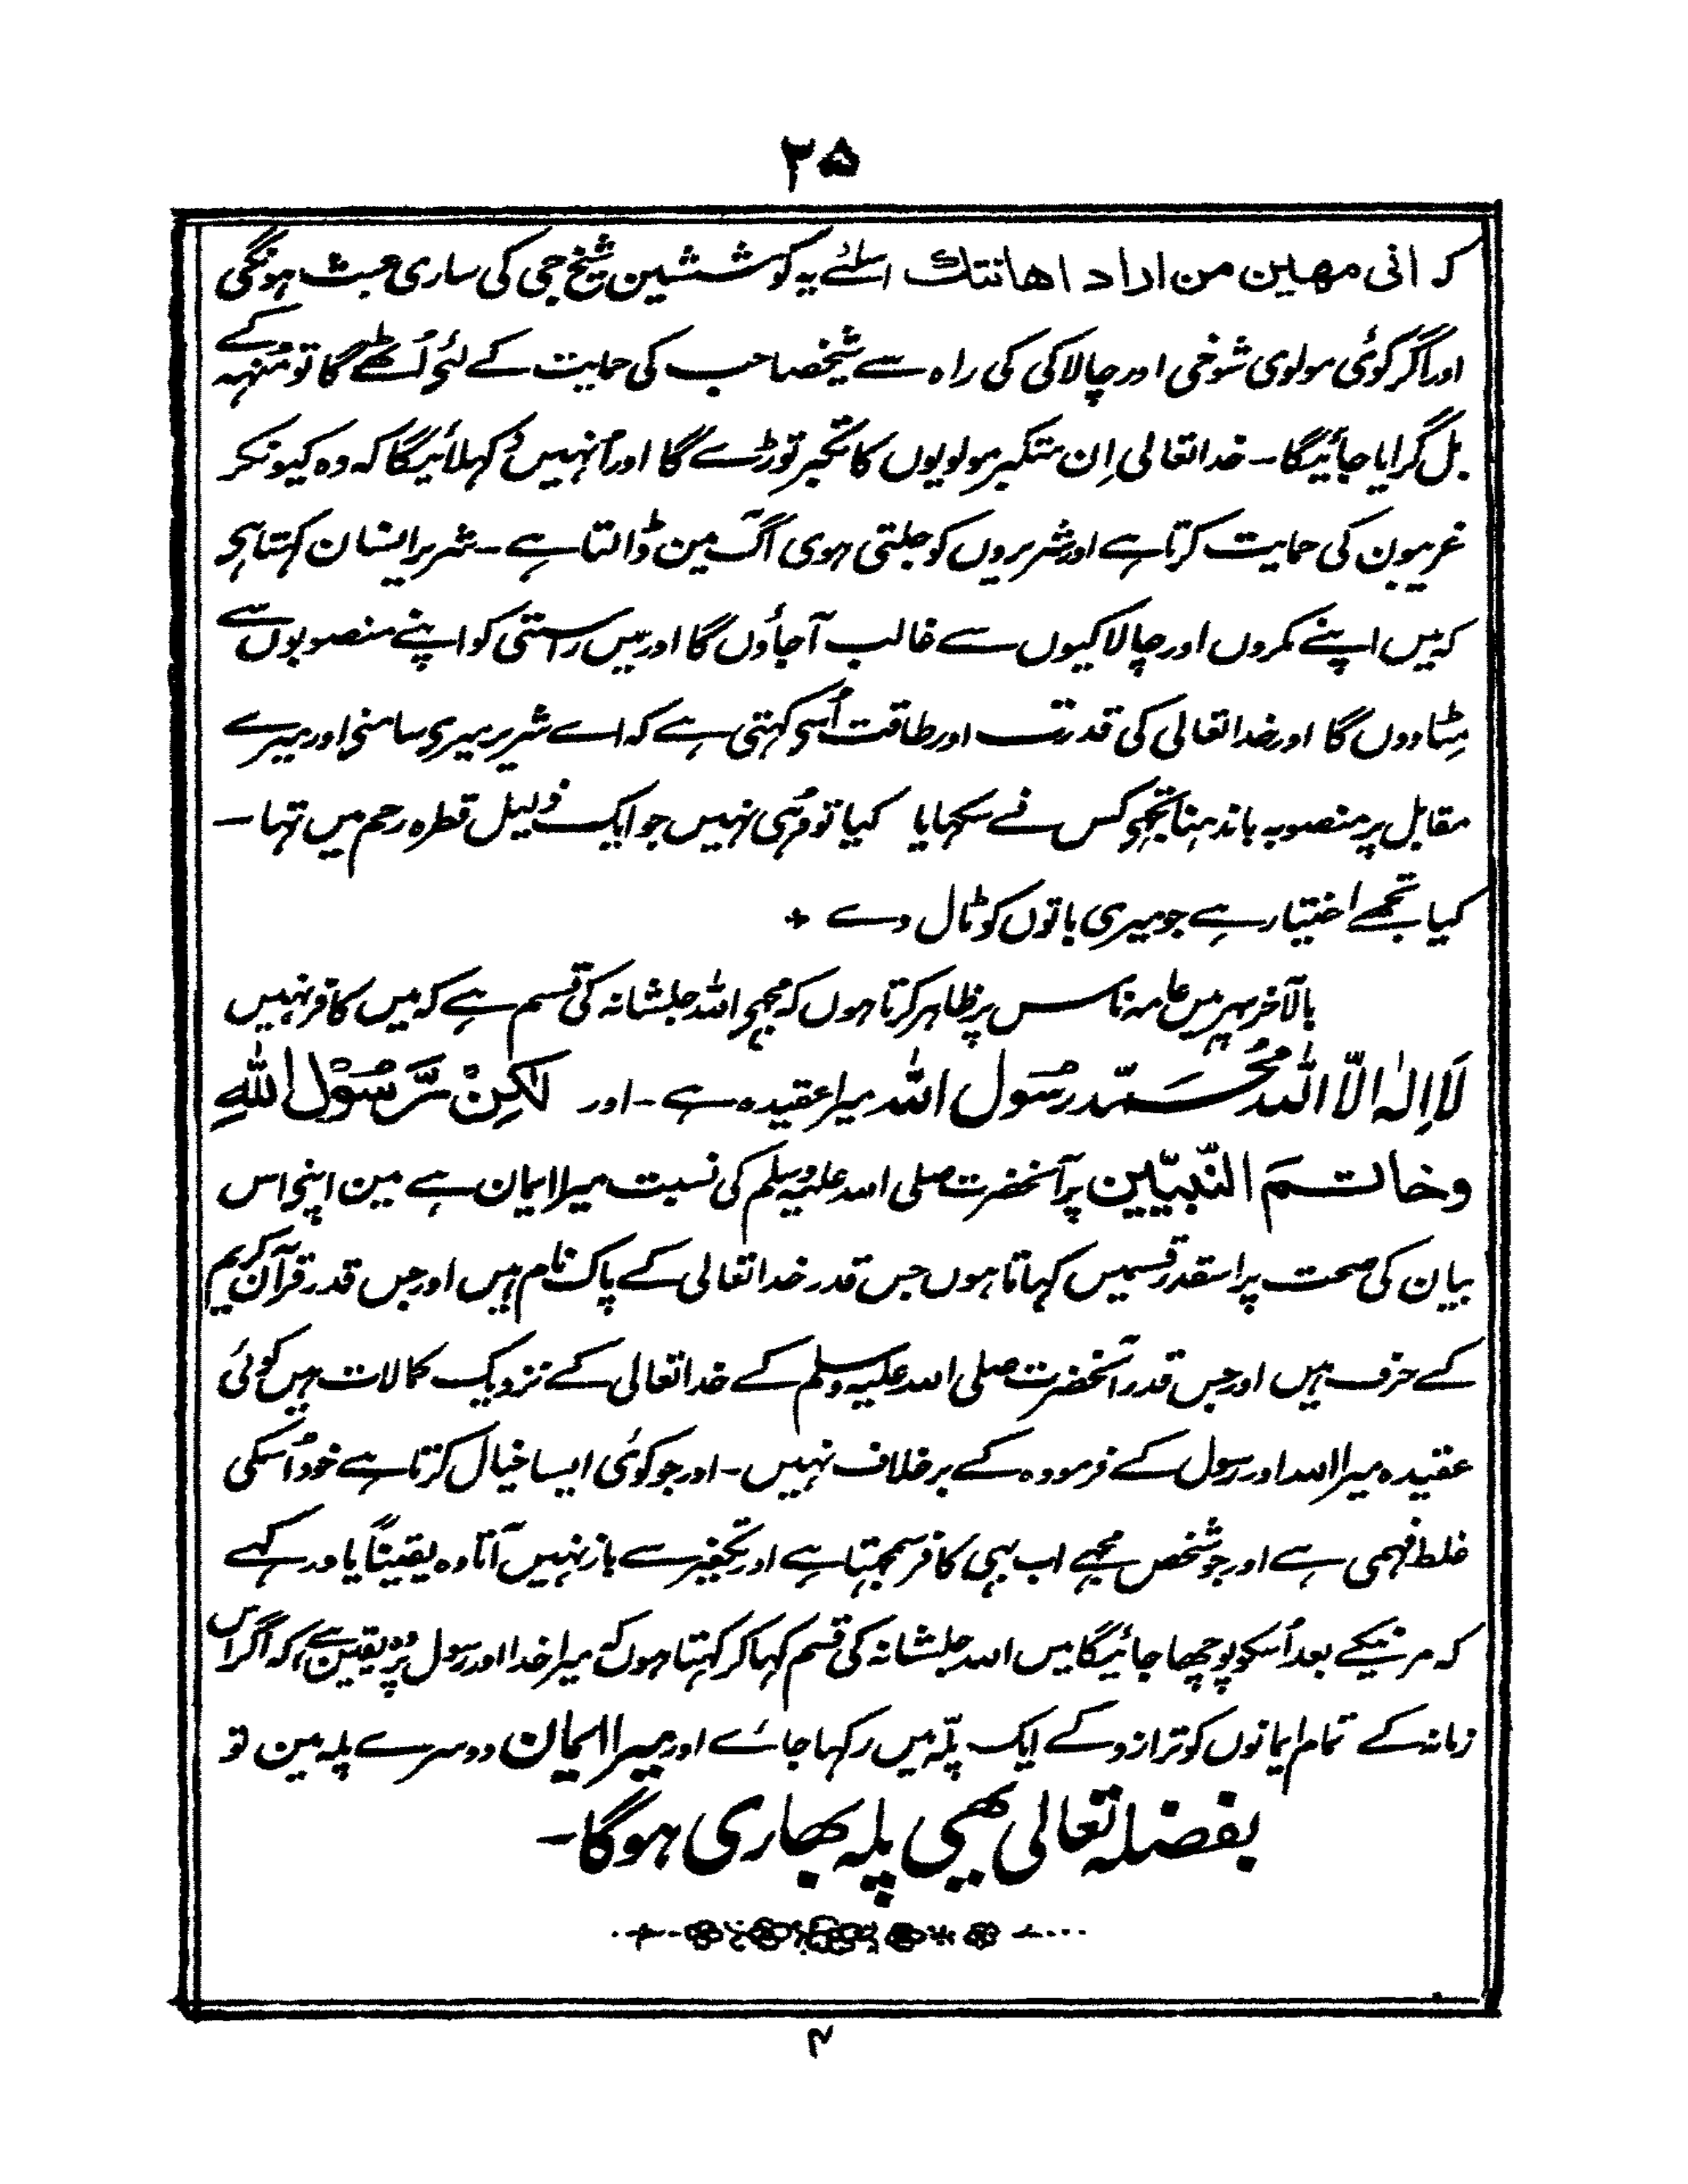 ۲۵
کہ انی مھین من اراد اھانتک اسلئے یہ کوششین شیخ جی کی ساری عبث ہونگی
اور اگر کوئی مولوی شوخی اور چالاکی کی راہ سے شیخصاحب کی حمایت کے لئے اُٹھے گا تو مُنہہ کے
بل گرایا جائیگا۔ خدا تعالی اِن متکبر مولویوں کا تکبر توڑے گا اور اُنہیں دکہلائیگا کہ وہ کیونکر
غریبون کی حمایت کرتا ہے اور شریروں کو جلتی ہوی آگ مین ڈالتا ہے۔ شریر انسان کہتا ہے
کہ میں اپنے مکروں اور چالاکیوں سے غالب آجاؤں گا اور میں راستی کو اپنے منصوبوں سے
مِٹا دوں گا اور خدا تعالی کی قدرت اور طاقت اُسے کہتی ہے کہ اے شریر میری سامنے اور میرے
مقابل پر منصوبہ باندہنا تجھے کس نے سکہایا کیا تو وہی نہیں جو ایک ذلیل قطرہ رحم میں تہا۔
کیا تجھے اختیار ہے جو میری باتوں کو ٹال دے +
بالآخر پہر میں عامہ ناس پر ظاہر کرتا ہوں کہ مجہے اللہ جلشانہ کی قسم ہے کہ میں کافر نہیں
لَا اِلٰہ الّا اللّٰہ مُحَمَّد رسُول اللّٰہ میرا عقیدہ ہے۔ اور لٰکِنْ رَّسُوْل اللّٰهِ
وخاتمَ النّبیّین پر آنحضرت صلی اللہ علیہ وسلم کی نسبت میرا ایمان ہے مین اپنے اس
بیان کی صحت پر اسقدر قسمیں کہاتا ہوں جس قدر خدا تعالی کے پاک نام ہیں اور جس قدر قرآن کریم
کے حرف ہیں اور جس قدر آنحضرت صلی اللہ علیہ وسلم کے خدا تعالی کے نزدیک کمالات ہیں کوئی
عقیدہ میرا اللہ اور رسول کے فرمودہ کے برخلاف نہیں۔ اور جو کوئی ایسا خیال کرتا ہے خود اُسکی
غلط فہمی ہے اور جو شخص مجہے اب بہی کافر سمجہتا ہے اور تکفیر سے باز نہیں آتا وہ یقیناً یاد رکہے
کہ مرنیکے بعد اُسکو پوچھا جائیگا میں اللہ جلشانہ کی قسم کہا کر کہتا ہوں کہ میرا خدا اور رسول پر وہ یقین ہے کہ اگر اس
زمانہ کے تمام ایمانوں کو ترازو کے ایک پلّہ میں رکہا جائے اور میرا ایمان دوسرے پلہ مین تو
بفضلہ تعالی یہی پلہ بھاری ہوگا۔
۴